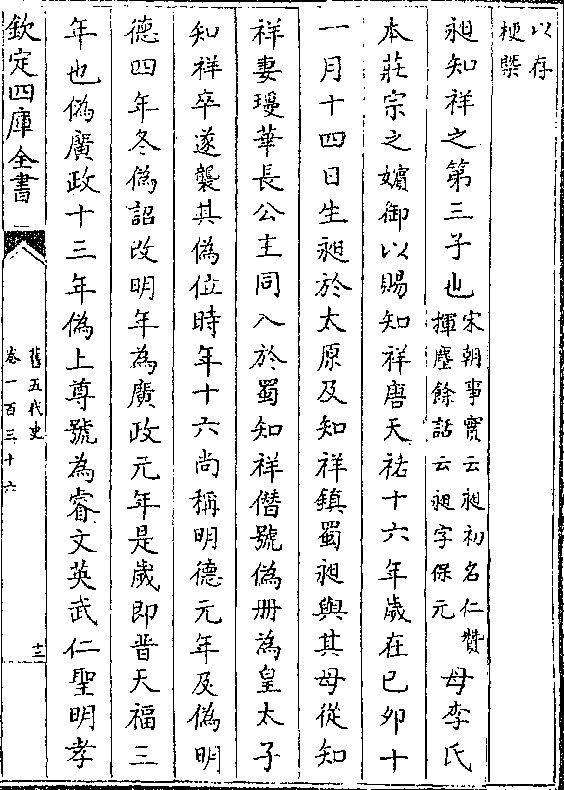 以存
梗槩
昶知祥之第三子也
宋朝事實云昶初名仁贊
揮麈餘話云昶字保元
母李氏
本莊宗之嬪御以賜知祥唐天祐十六年歲在己卯十
一月十四日生昶於太原及知祥鎮蜀昶與其母從知
祥妻瓊華長公主同入於蜀知祥僭號偽册為皇太子
知祥卒遂襲其偽位時年十六尚稱明德元年及偽明
德四年冬偽詔改明年為廣政元年是歲即晉天福三
年也偽廣政十三年偽上尊號為睿文英武仁聖明孝
欽定四庫全書
舊五代史
卷一百三十六
十二